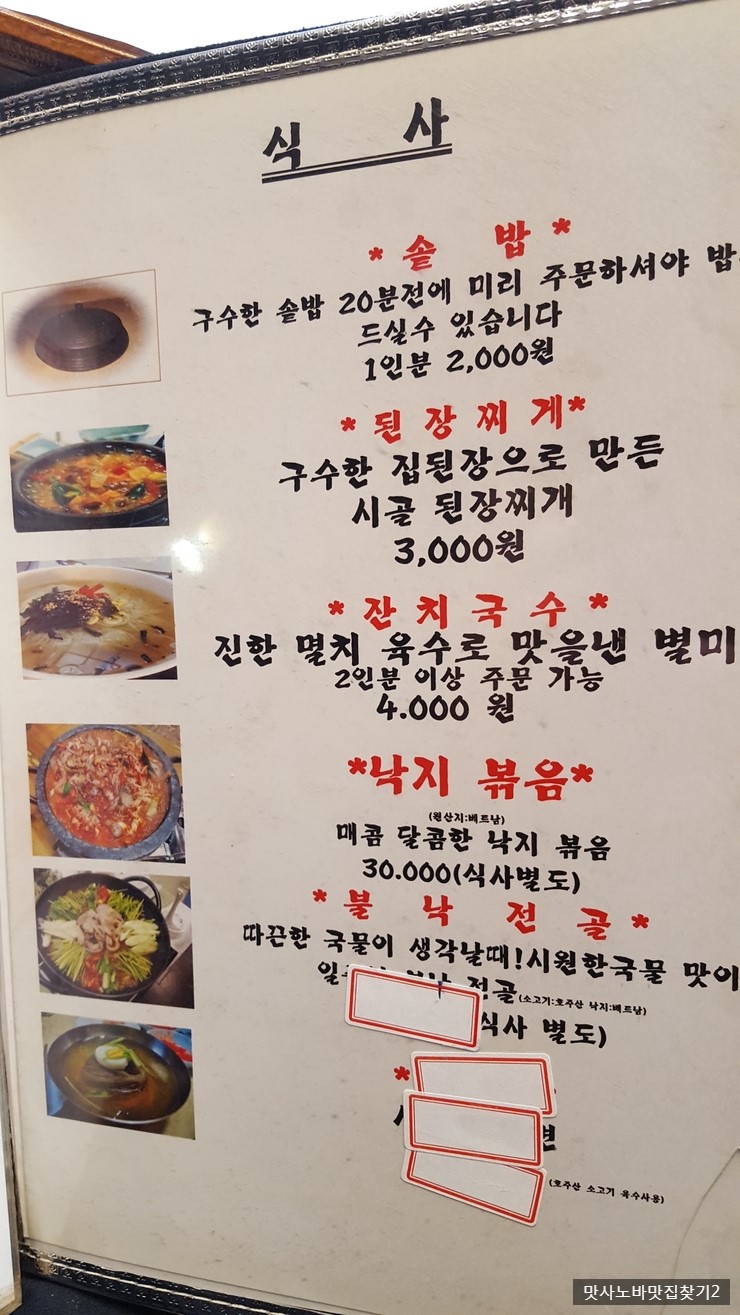 식 사
* 솥 밥 *
구수한 솥밥 20분전에 미리 주문하셔야 밥
드실수 있습니다
1인분 2,000원
* 된 장 찌 게*
구수한 집된장으로 만든
시골 된장찌개
3,000원
* 잔 치 국 수 *
진한 멸치 육수로 맛을낸 별미
2인분 이상 주문 가능
4.000 원
*낙지 볶음*
(원산지:베트남)
매콤 달콤한 낙지 볶음
30.000(식사별도)
* 불 낙 전 골 *
따끈한 국물이 생각날때!시원한국물 맛이
전골(소고기:호주산 낙지:베트남)
식사 별도)
*
면
(호주산 소고기 육수사용)
맛사노바맛집찾기2